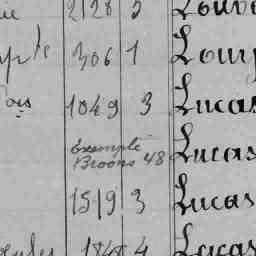 2128 5 Louve
306 1 Loury
1049 3 Lucas
Exempté
Broons 48 Lucas
1519 3 Lucas
4 Lucas